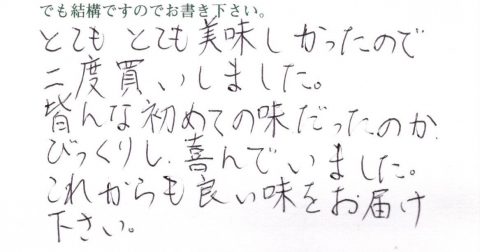 でも結構ですのでお書き下さい。
とても とても美味しかったので
二度買いしました。
皆んな初めての味だったのか、
びっくりし、喜んでいました。
これからも良い味をお届け
下さい。